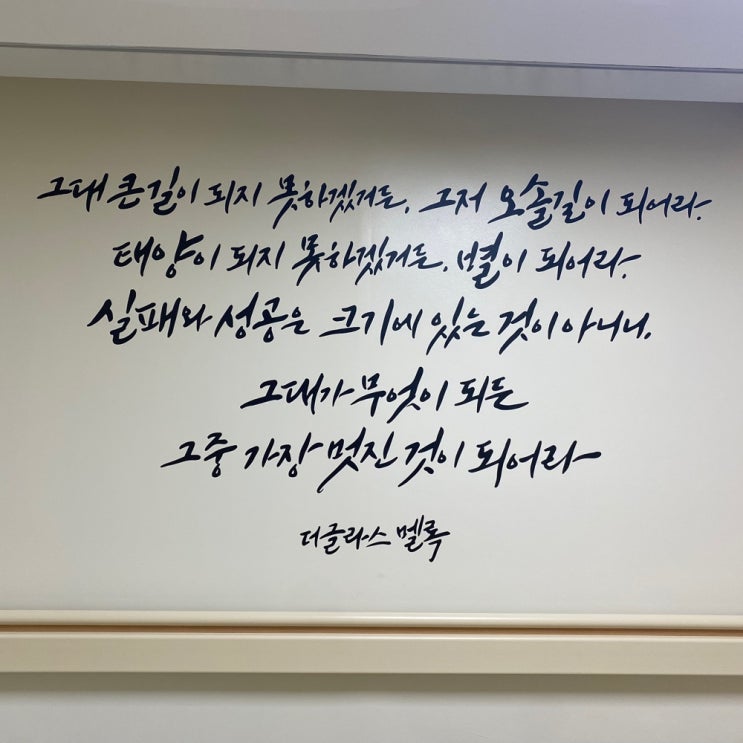 그대 큰길이 되지 못하겠거든, 그저 오솔길이 되어라.
태양이 되지 못하겠거든, 별이 되어라.
실패와 성공은 크기에 있는 것이 아니니,
그대가 무엇이 되든
그중 가장 멋진 것이 되어라
더글라스 멜록